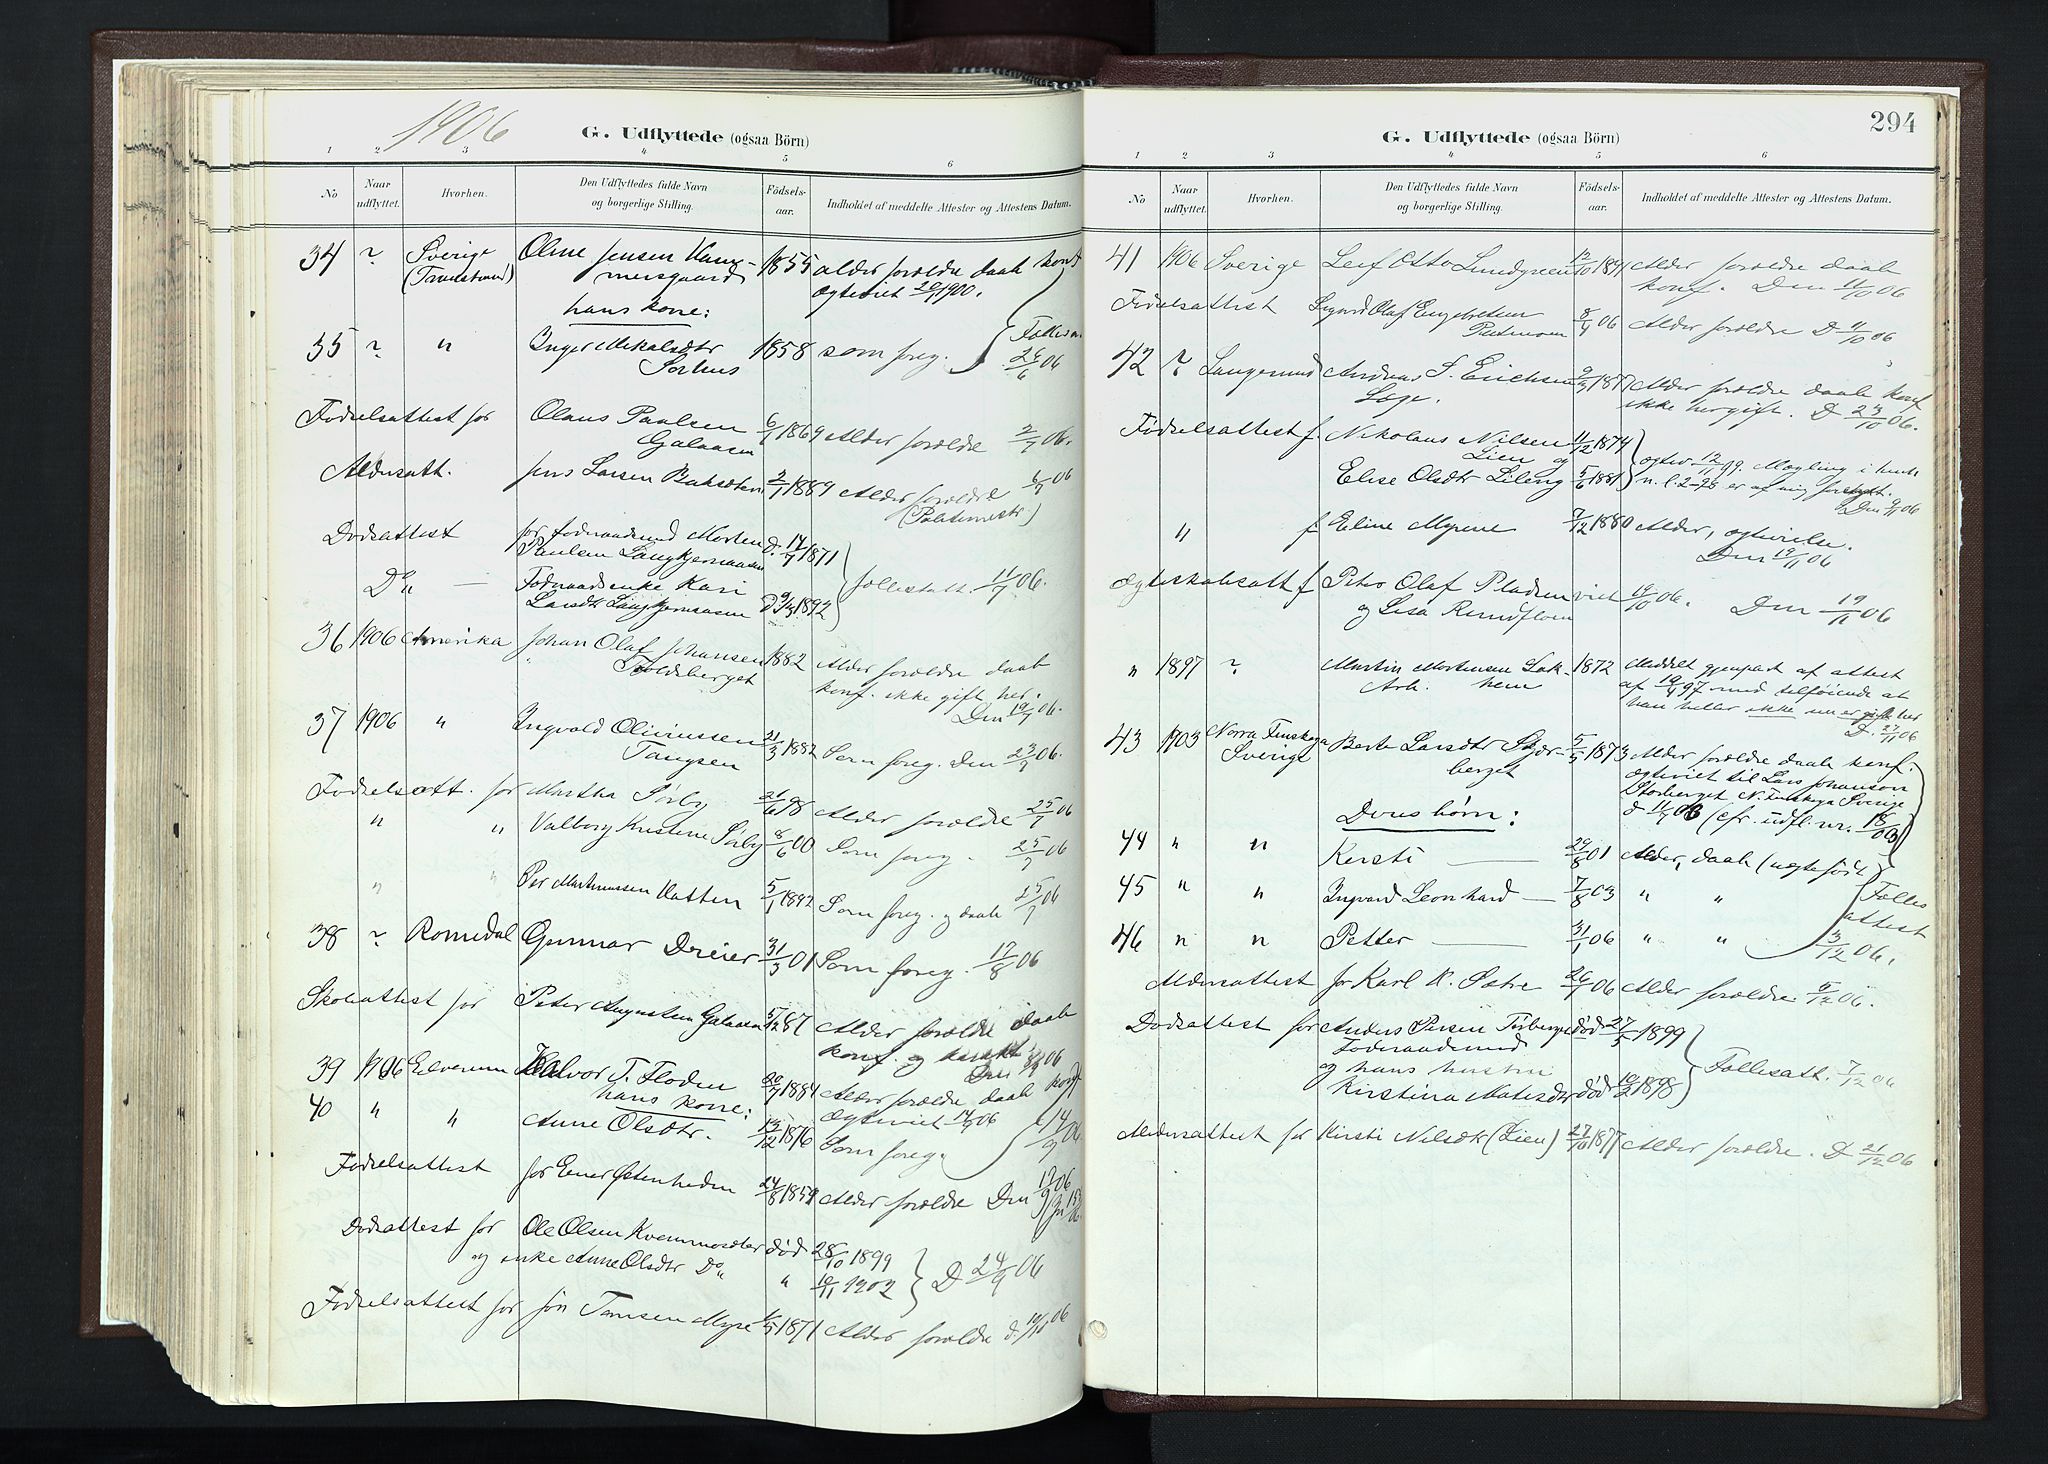 1906
G. Udflyttede (ogsaa Börn)
1 2 3 4 5 6
No
Naar udflyttet.
Hvorhen.
Den Udflyttedes fulde Navn og borgerlige Stilling.
Födsels-aar.
Indholdet af meddelte Attester og Attestens Datum.
34 ? Sverige Oline Jensen 1855 alder forældre daab konf
mersgaard
ægteviet 1900.
hans kone:
35 ? " Inger 1858 som foreg.
Fødselsattest for Olaus Paulsen 1869 Alder forældre 2/7 06.
Galaasen
Aldersatt. Jens Larsen 2/1 1889 Alder forældre 6/7 06
Dødsattest for føderaadsmand Morten d. 14/7 1871
Paulsen
Do " — Føderaadsenke Kari fællesatt. 11/7 06.
Larsdtr d 9/3 1892
36 1906 Amerika Johan Olaf Johansen 1882 Alder forældre daab
konf. ikke gift her.
Den 19/7 06.
37 1906 " Ingvald Oliviussen 21/3 1882 Som foreg. Den 23/7 06.
Tangen
Fødselsatt. for Martha Sørby 21/6 98 Alder forældre 25/7 06
" " Valborg Kristine Sørby 8/6 00 Som foreg. 25/7 06
" " Per Martinussen 5/1 1892 Som foreg. og daab 25/7 06
38 ? Romedal Gunnar Dreier 31/3 01 Som foreg. 17/8 06
Skoleattest for Peter Augustsen Galaasen 5/12 87 Alder forældre daab
konf. og
39 1906 Elverum Halvor T. Floden 20/7 1884 Alder forældre daab konf
hans kone: ægteviet 14/9 06
40 " " Anne Olsdtr. 13/12 1876 Som foreg. 14/9 06.
Fødselsattest for Einar Østenheden 24/8 1859 Alder forældre Den 17/9 06
Dødsattest for Ole Olsen død 28/10 1899
og enke Anne Olsdtr Do " " 1902 D 24/9 06
Fødselsattest for Jon Tomsen Myre 1871 Alder forældre d. 06
294
G. Udflyttede (ogsaa Börn)
1 2 3 4 5 6
No
Naar udflyttet.
Hvorhen.
Den Udflyttedes fulde Navn og borgerlige Stilling.
Födsels-aar.
Indholdet af meddelte Attester og Attestens Datum.
41 1906 Sverige Leif Otto Lundgreen Alder forældre daab
konf. Den 11/10 06
Fødselsattest Sigurd Olaf Engebretsen 8/9 06 Alder forældre D 11/10 06
42 ? Langesund Andreas S. Erichsen Alder forældre daab konf
Læge. ikke her gift. D 23/10 06.
Fødselsattest f. Nikolaus Nilsen 11/12 1874
Lien og
Elise Olsdtr Lileng 5/6 1881
Den 9/11 06
" f Eline Myrene 7/12 1880 Alder, ægtevielse.
Den 19/11 06
Ægteskabsatt f Peter Olaf viet 19/10 06. Den 19/11 06
og Lisa
" 1897 ? Martin Mortensen 1872 Meddelt gjenpart af attest
Arb. af 10/4 97 med tilføiende at
han heller ikke er gift her
D. 27/11 06
43 1903 Norra Finskoga Berte Larsdtr 5/5 1873 Alder forældre daab konf.
Sverige berget ægteviet til Lars Johanson
N. Finskoga Sverige
(cfr. udfl. nr. 18/03)
Dens børn:
44 " " Kersti — 29/8 01 Alder, daab (uægte født
45 " " Ingvard Leonhard — 7/8 03 " " Fælles
46 " " Petter — 31/1 06 " " attest
3/12 06.
Aldersattest for Karl R. Sætre 06 Alder forældre 5/12 06.
Dødsattest for Anders Persen død 27/5 1899
Føderaadsmand
og hans hustru Fællesatt. 7/12 06
Kirstina død 10/2 1898
Aldersattest for Kirsti Nilsdtr (Lien) 27/10 1877 Alder forældre. D 21/12 06